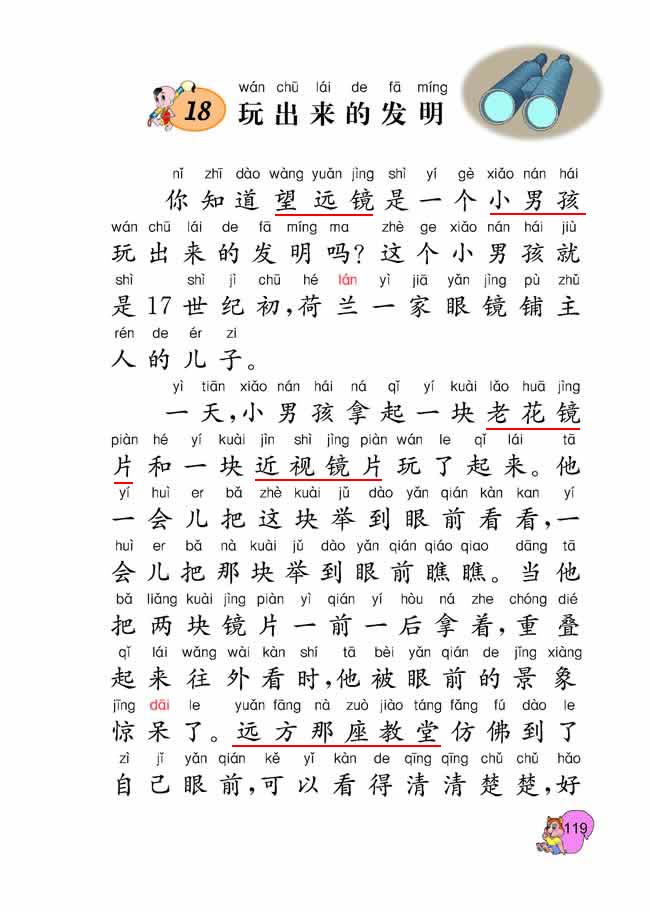 wán chū lái de fā míng
18 玩出来的发明
nǐ zhī dào wàng yuǎn jìng shì yí gè xiǎo nán hái
你知道望远镜是一个小男孩
wán chū lái de fā míng ma zhè ge xiǎo nán hái jiù
玩出来的发明吗?这个小男孩就
shì shì jì chū hé lán yì jiā yǎn jìng pù zhǔ
是17世纪初,荷兰一家眼镜铺主
rén de ér zi
人的儿子。
yì tiān xiǎo nán hái ná qǐ yí kuài lǎo huā jìng
一天,小男孩拿起一块老花镜
piàn hé yí kuài jìn shì jìng piàn wán le qǐ lái tā
片和一块近视镜片玩了起来。他
yí huì er bǎ zhè kuài jǔ dào yǎn qián kàn kan yí
一会儿把这块举到眼前看看,一
huì er bǎ nà kuài jǔ dào yǎn qián qiáo qiao dāng tā
会儿把那块举到眼前瞧瞧。当他
bǎ liǎng kuài jìng piàn yì qián yí hòu ná zhe chóng dié
把两块镜片一前一后拿着,重叠
qǐ lái wǎng wài kàn shí tā bèi yǎn qián de jǐng xiàng
起来往外看时,他被眼前的景象
jīng dāi le yuǎn fāng nà zuò jiào táng fǎng fú dào le
惊呆了。远方那座教堂仿佛到了
zì jǐ yǎn qián kě yǐ kàn de qīng qīng chǔ chǔ hǎo
自己眼前,可以看得清清楚楚,好
119